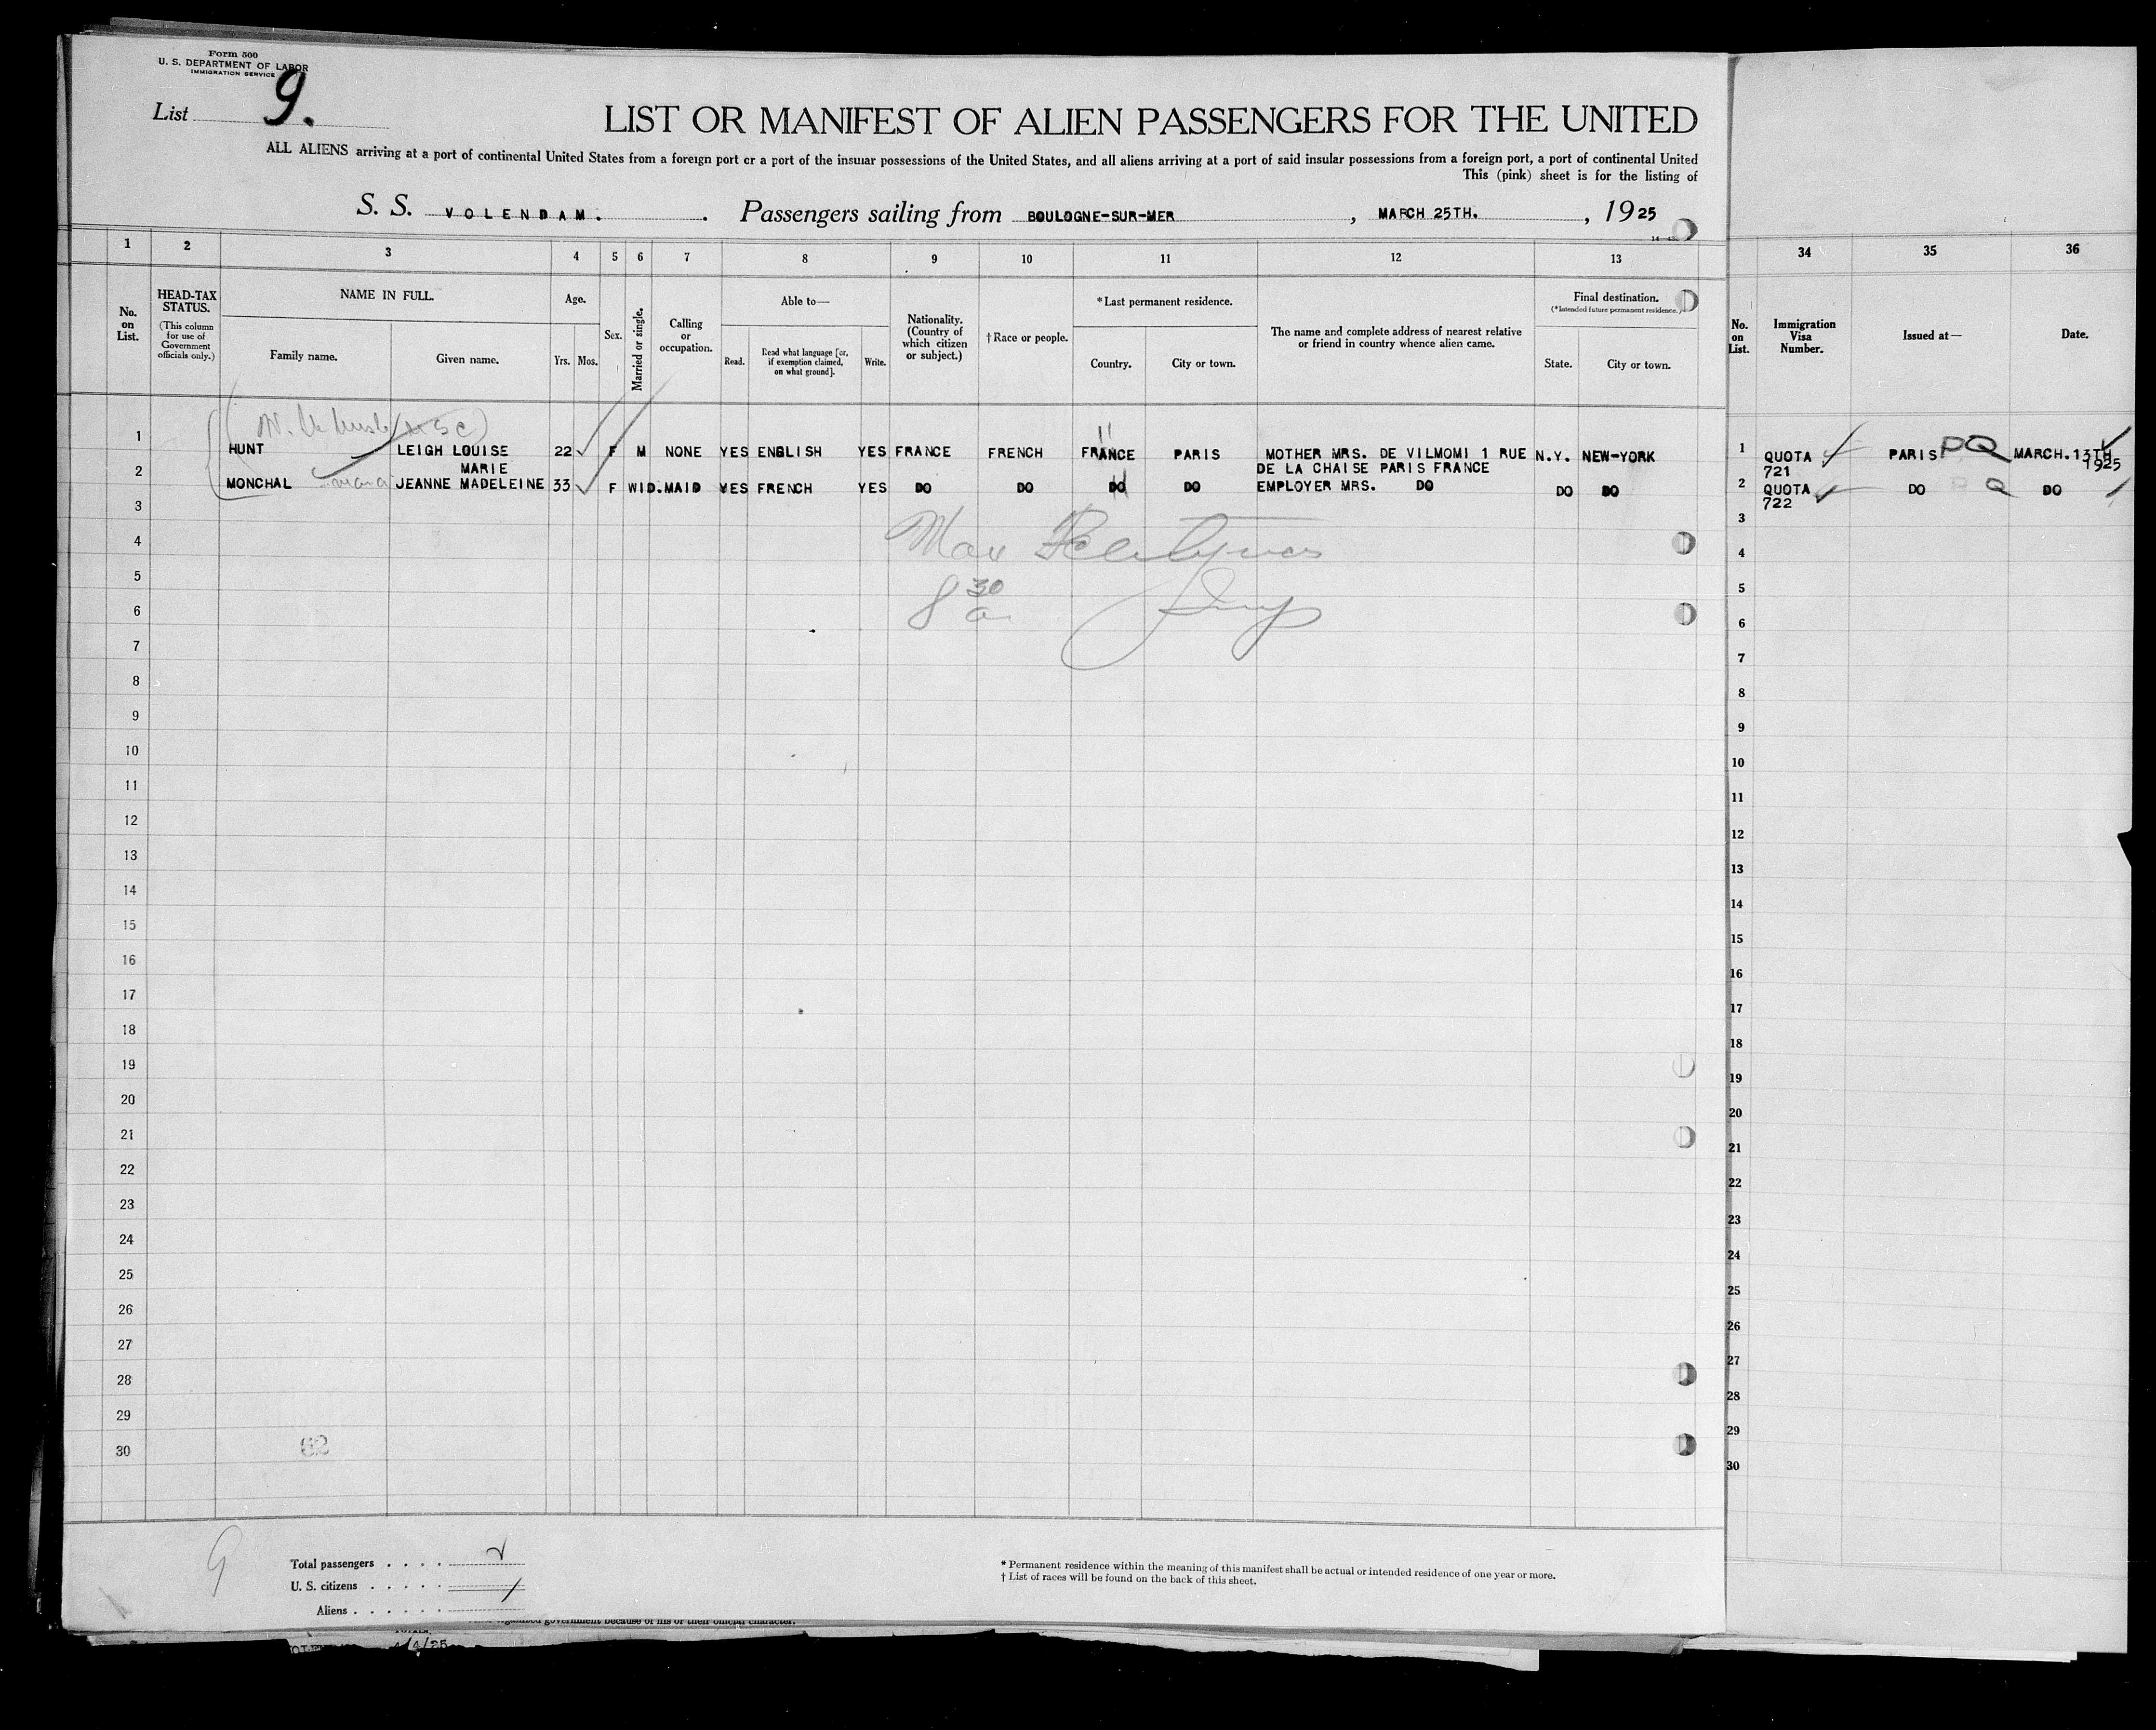 Form 500
U. S. DEPARTMENT OF LABOR
IMMIGRATION SERVICE
List 9.
LIST OR MANIFEST OF ALIEN PASSENGERS FOR THE UNITED
ALL ALIENS arriving at a port of continental United States from a foreign port or a port of the insular possessions of the United States, and all aliens arriving at a port of said insular possessions from a foreign port, a port of continental United
This (pink) sheet is for the listing of
S. S. VOLENDAM. Passengers sailing from BOULOGNE-SUR-MER, MARCH 25TH., 1925
1 2 3 4 5 6 7 8 9 10 11 12 13 34 35 36
No. on List.
HEAD-TAX STATUS.
(This column for use of Government officials only.)
NAME IN FULL.
Family name. Given name.
Age.
Yrs. Mos.
Sex.
Married or single.
Calling or occupation.
Able to—
Read. Read what language [or, if exemption claimed, on what ground]. Write.
Nationality. (Country of which citizen or subject.)
† Race or people.
* Last permanent residence.
Country. City or town.
The name and complete address of nearest relative or friend in country whence alien came.
Final destination.
(*Intended future permanent residence.)
State. City or town.
No. on List.
Immigration Visa Number.
Issued at—
Date.
1 HUNT LEIGH LOUISE 22 F M NONE YES ENGLISH YES FRANCE FRENCH FRANCE PARIS MOTHER MRS. DE VILMOMI 1 RUE N.Y. NEW-YORK 1 QUOTA PARIS PQ MARCH.13TH
MARIE DE LA CHAISE PARIS FRANCE 721 1925
2 MONCHAL JEANNE MADELEINE 33 F WID. MAID YES FRENCH YES DO DO DO DO EMPLOYER MRS. DO DO DO 2 QUOTA DO PQ DO
722
3 3
4 4
5 5
8 30 a
6 6
7 7
8 8
9 9
10 10
11 11
12 12
13 13
14 14
15 15
16 16
17 17
18 18
19 19
20 20
21 21
22 22
23 23
24 24
25 25
26 26
27 27
28 28
29 29
30 62 30
9
Total passengers
U. S. citizens
Aliens
* Permanent residence within the meaning of this manifest shall be actual or intended residence of one year or more.
† List of races will be found on the back of this sheet.
government because of his or their official character.
4/4/25